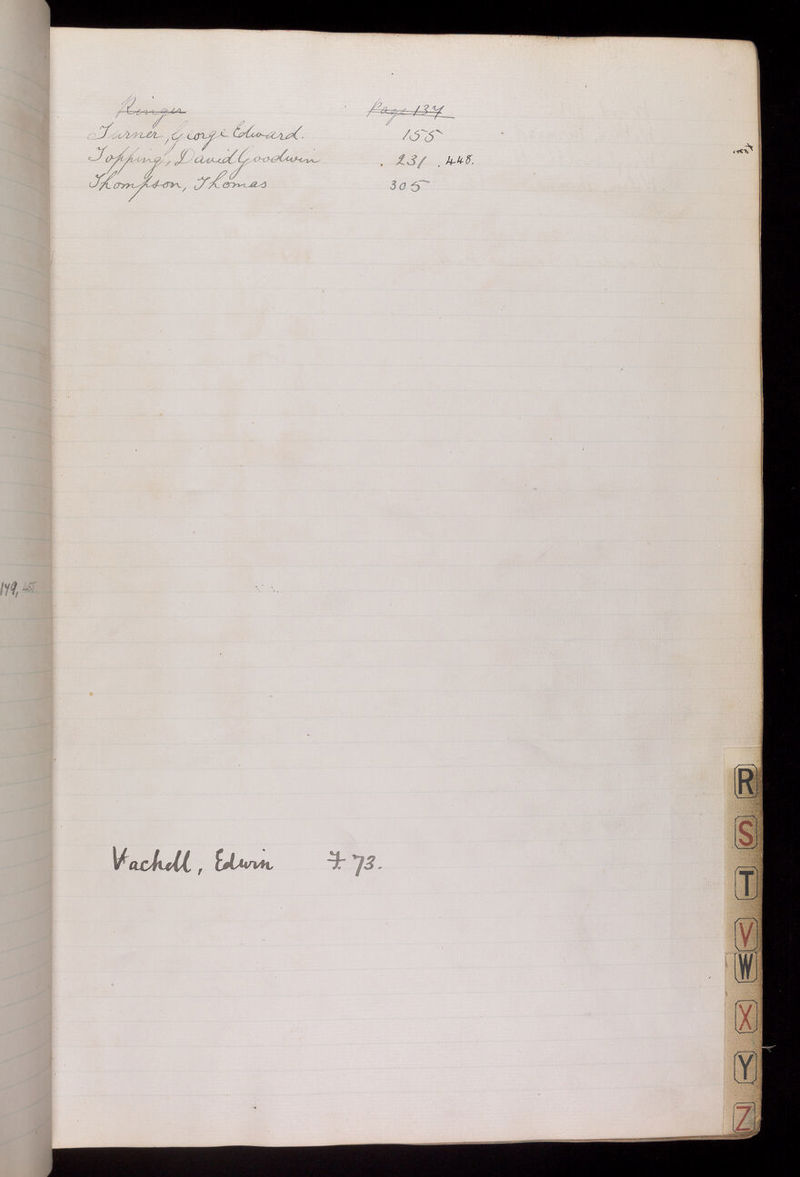 Ringer Page 137
Turner, George Edward. 155
Topping, David Goodwin . 231 . 448.
Thompson, Thomas 305
149,
Vachell, Edwin 73.
R
S
T
V
W
X
Y
Z